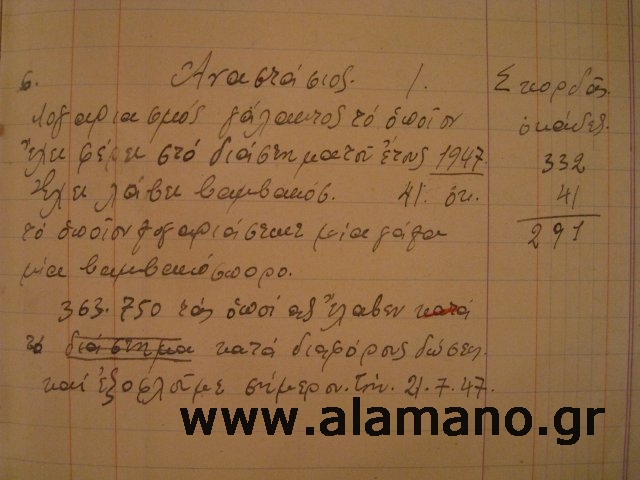 6. Αναστάσιος. 1. Σκορδάς.
Λογαριασμός γάλακτος τό ὁποῖον ὀκάδες.
ἔχει φέρει στό διάστημα τοῦ ἔτους 1947 332
Ἔχει λάβει βαμβακόσ. 41. ὀκ. 41
τό ὁποῖον λογαριάστηκε μία γάλα 291
μία βαμβακόσπορο.
363.750 τάς ὁποίας ἔλαβεν κατά
τό διάστημα κατά διαφόρους δώσεις.
καί ἐξοφλοῦμε σήμερον. τήν. 21.7.47.
www.alamano.gr